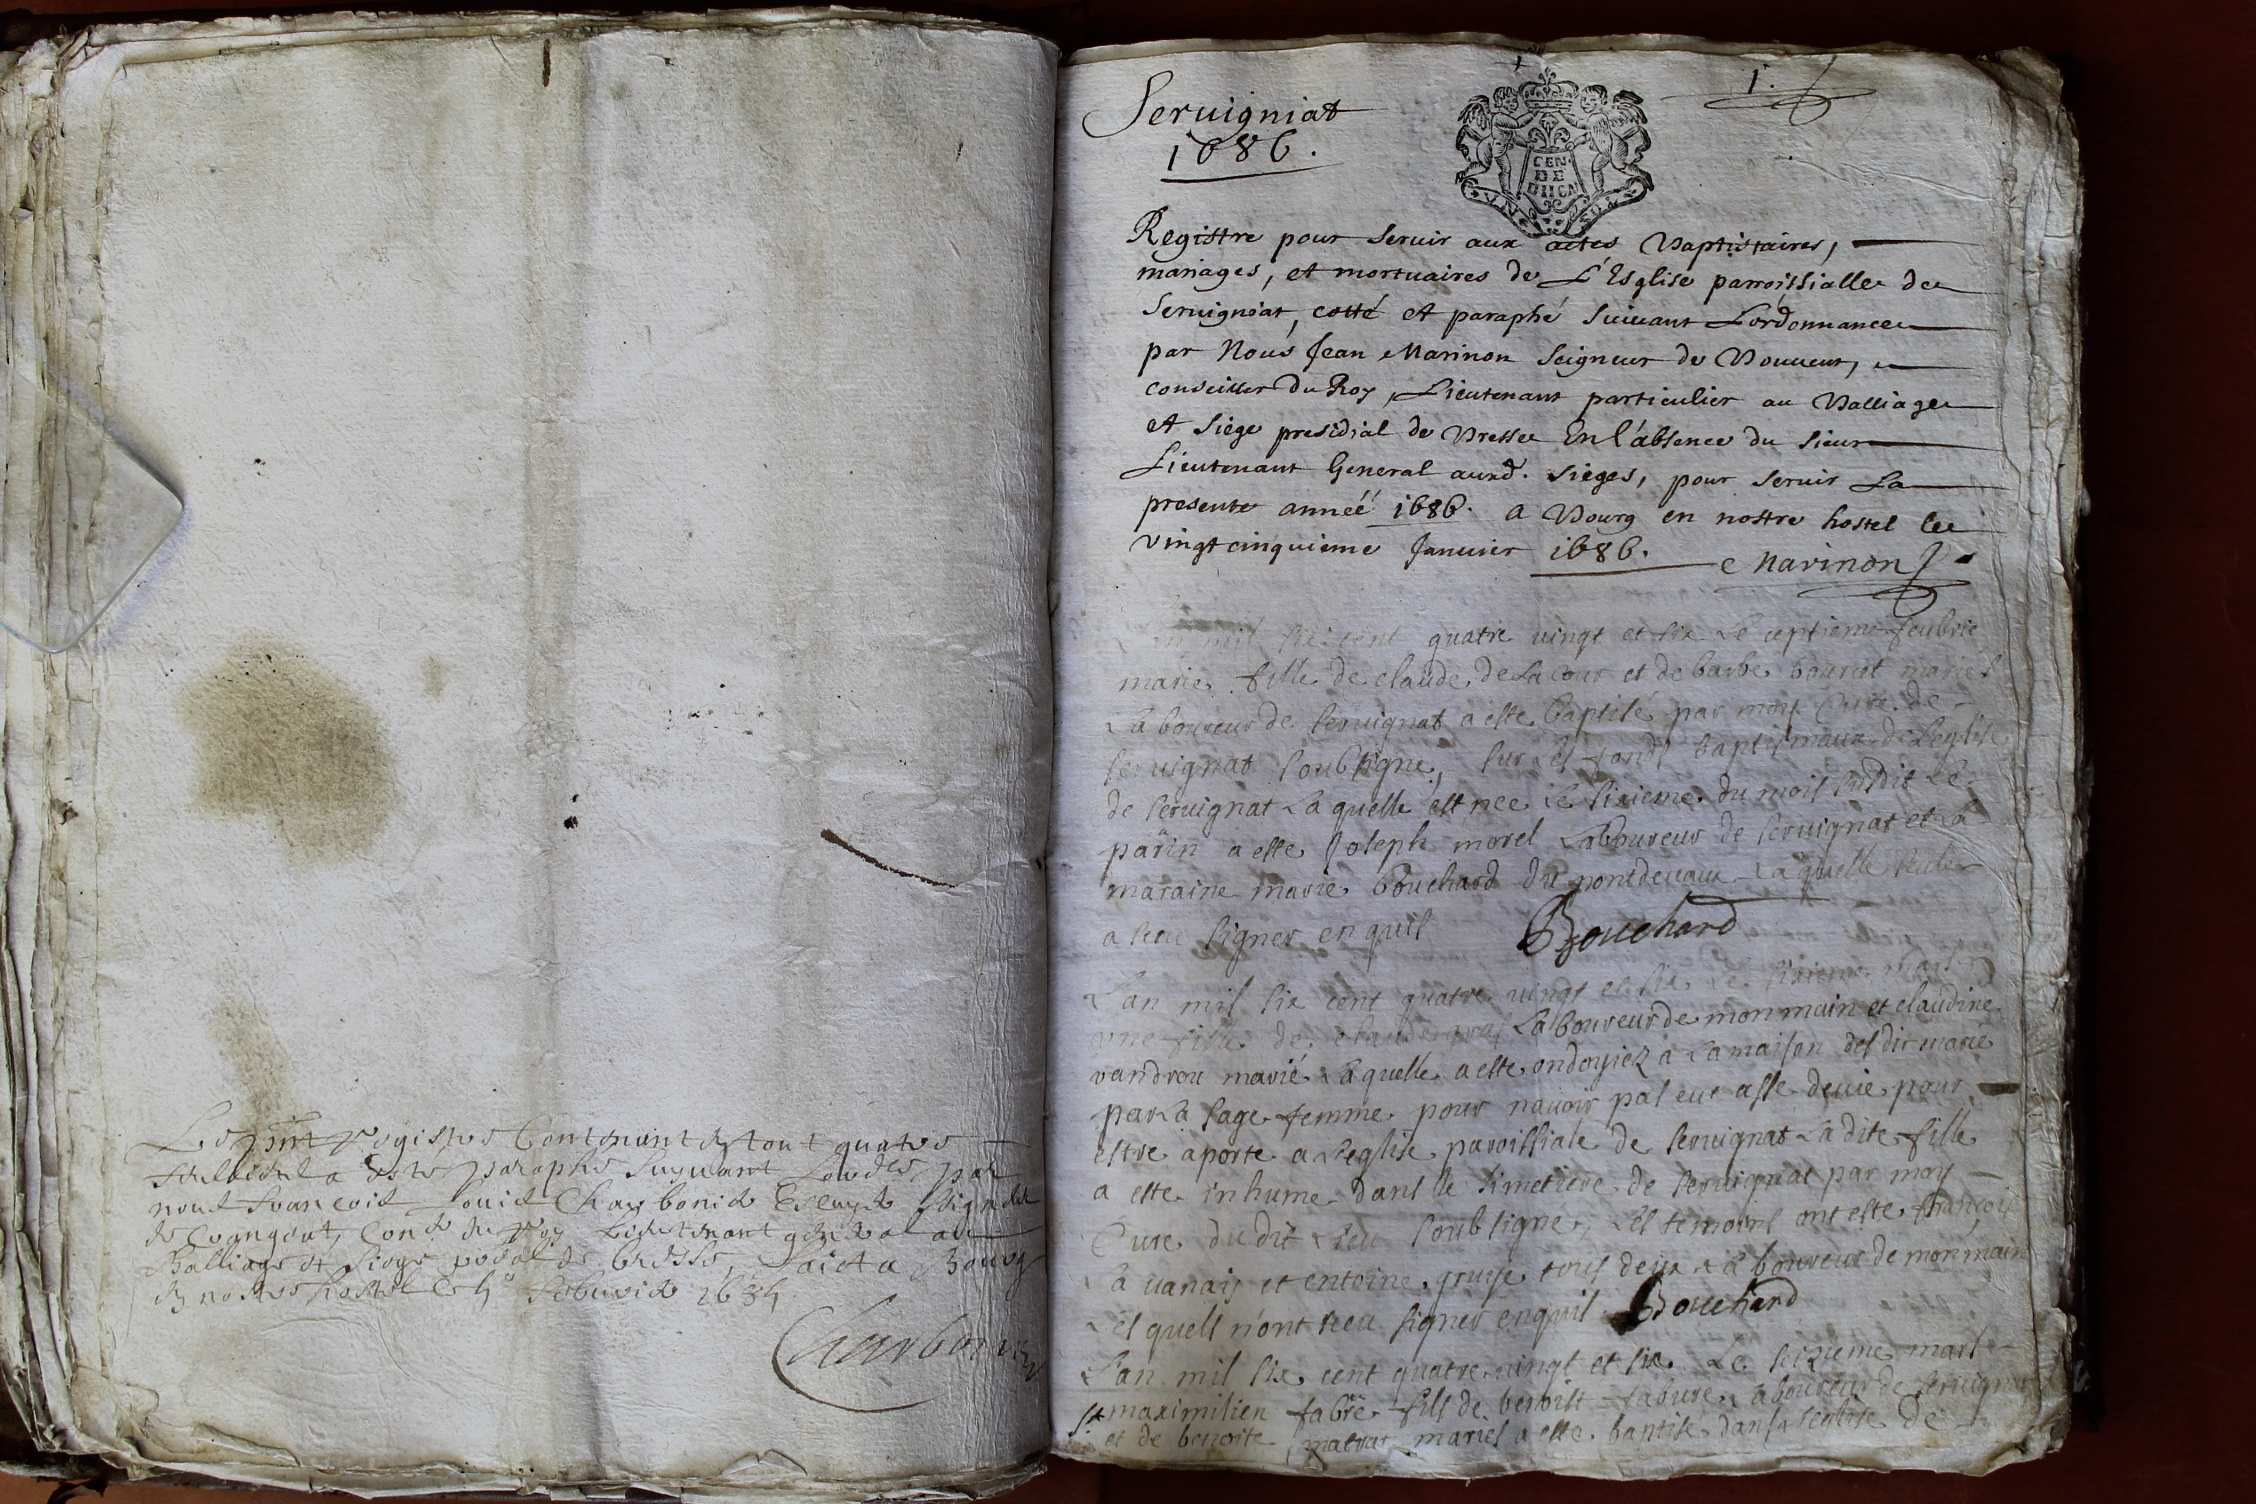 Le pnt registre Contenant en tout quatre
feullets a este paraphé suyuant l'ord.ce par
nous francois Louis Charbonier Escuyer Seigneur
de Crangeat, Con.er du roy Lieutenant general au
Balliage et siege p.dal de bresse, faict a Bourg
en nostre hostel le feburier 1684
Charbonier
1.
Seruigniat
1686.
GEN
DE
DIION
VN SOL
Registre pour seruir aux actes Baptistaires,
mariages, et mortuaires de L'Esglise parroissialle de
Seruigniat, cotté et paraphé suiuant Lordonnance
par Nous Jean Marinon Seigneur de Bouuent,
conseiller du Roy, Lieutenant particulier au Balliage
et siege presidial de Bresse En l'absence du sieur
Lieutenant General ausd. sieges, pour seruir La
presente année 1686. a Bourg en nostre hostel le
vingt cinquieme Januier 1686. Marinon
Lan mil six cent quatre uingt et six Le ceptieme feubrie
marie fille de claude de Lacour et de barbe bouret mariés
Laboureur de seruignat a este baptisé par moy Cure de
seruignat soubsigné, sur les fonds baptismaux de Leglise
de seruignat Laquelle est nee le sixieme du mois susdit Le
parin a este Joseph morel Laboureur de seruignat et La
maraine marie bouchard du pontdeuaux Laquelle
a sceu signer enquis Bouchard
Lan mil six cent quatre uingt et six Le sixieme mars
vne fille de claude gras Laboureur de monmain et claudine
vandrou marié Laquelle a este ondoyiez a La maison desdit marié
par La sage femme pour nauoir pas eut asse deuie pour
estre aporte a Leglise paroissiale de seruignat La dite fille
a este inhume dans le simetiere de seruignat par moy
Cure du dit Lieu soubsigne, Les temoins ont este francois
La uanais et entoine gruye tous deux Laboureur de monmain
Lesquels n'ont sceu signer enquis Bouchard
Lan mil six cent quatre uingt et six Le seizieme mars
maximilien fabre fils de benoist fabure Laboureur de seruignat
et de benoite mariés a este baptisé dans Leglise de